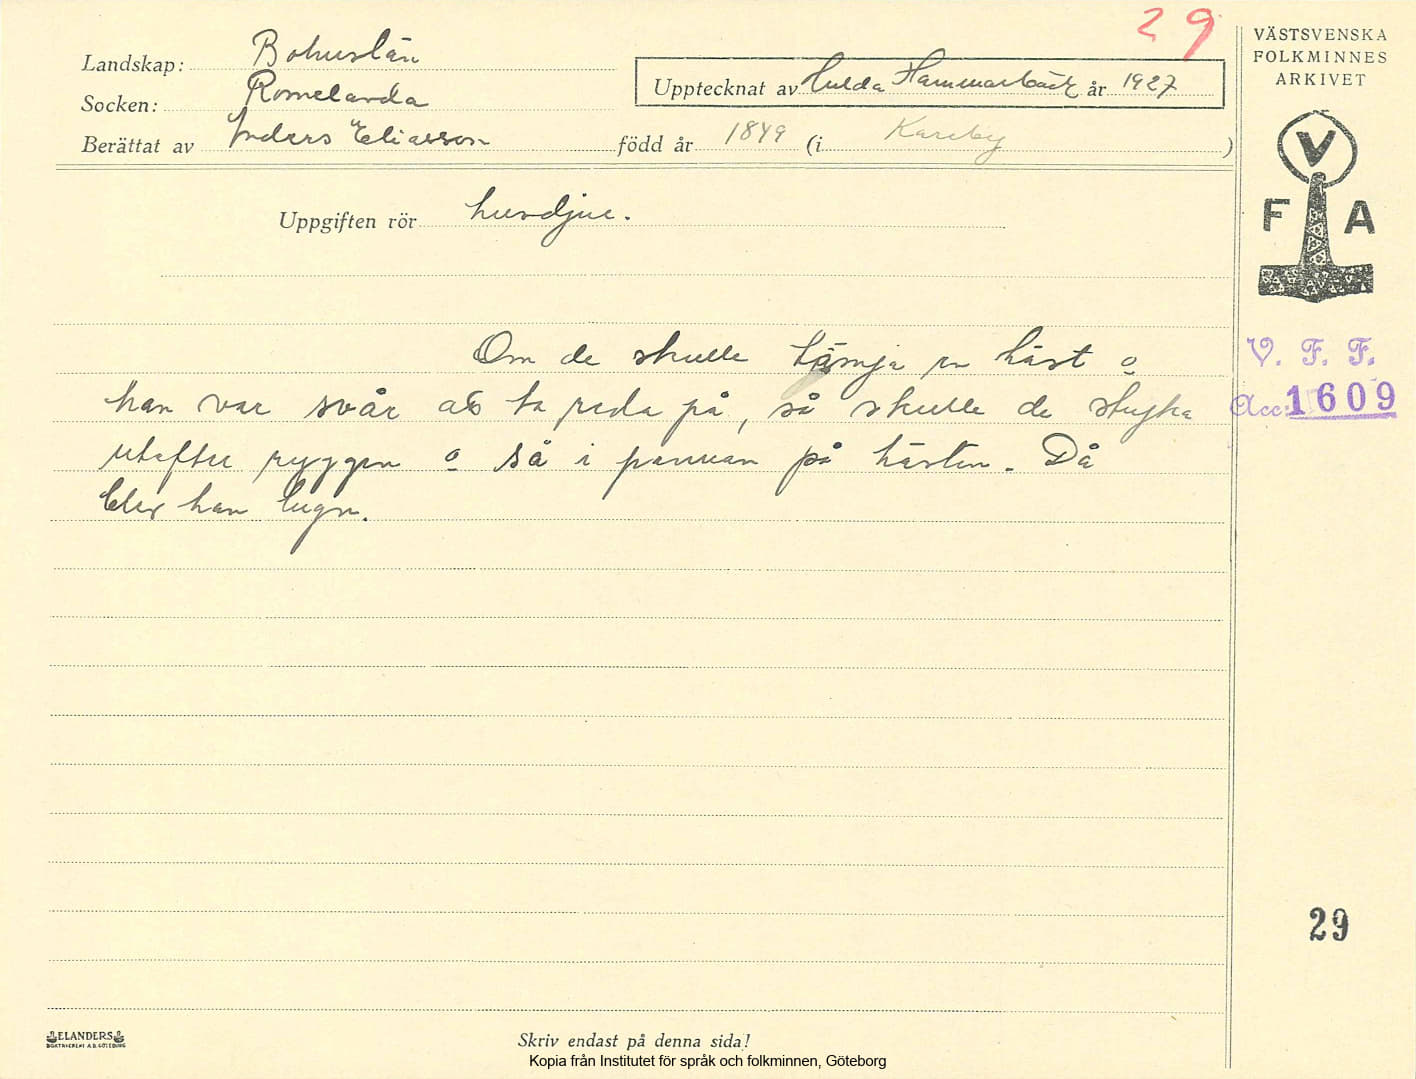 29
VÄSTSVENSKA
FOLKMINNES
ARKIVET
Landskap: Bohuslän
Socken: Romelanda
Upptecknat av Hulda Hammarbäck år 1927
Berättat av Anders Eliasson född år 1849 (i Kareby)
V
F A
Uppgiften rör husdjur.
Om de skulle tämja en häst o
han var svår att ta reda på, så skulle de stryka
utefter ryggen o så i pannan på hästen. Då
blev han lugn.
V. F. F.
Acc: 1609
29
ELANDERS
BOKTRYCKERI A.B. GÖTEBORG
Skriv endast på denna sida!
Kopia från Institutet för språk och folkminnen, Göteborg